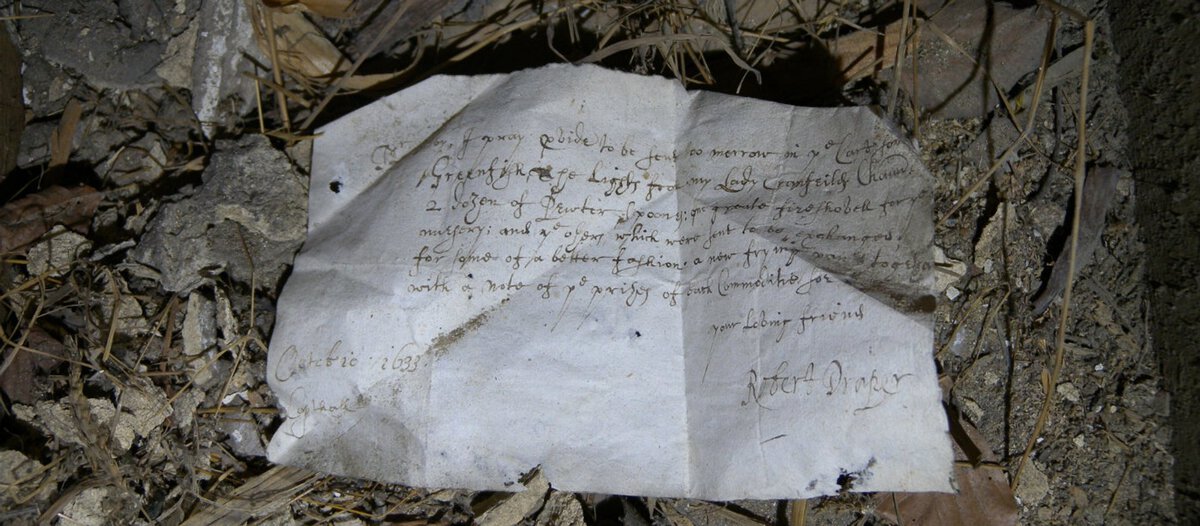 Mr I pray pvide to be sent too morrow in ye Cart some
Greenfish, The Lights from my Lady Cranfeilds Cham
2 dozen of Pewter spoons: one greate fireshovell for ye
nursery; and ye oyers which were sent to be exchanged
for some of a better fashion, a new frying pan together
with a note of ye prises of such Commodities for
your loving friend
Robert Draper
Octobre 1633
Copthall